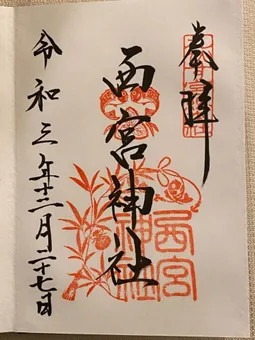 奉拝
西宮神社
令和三年十二月二十七日
西宮
神社